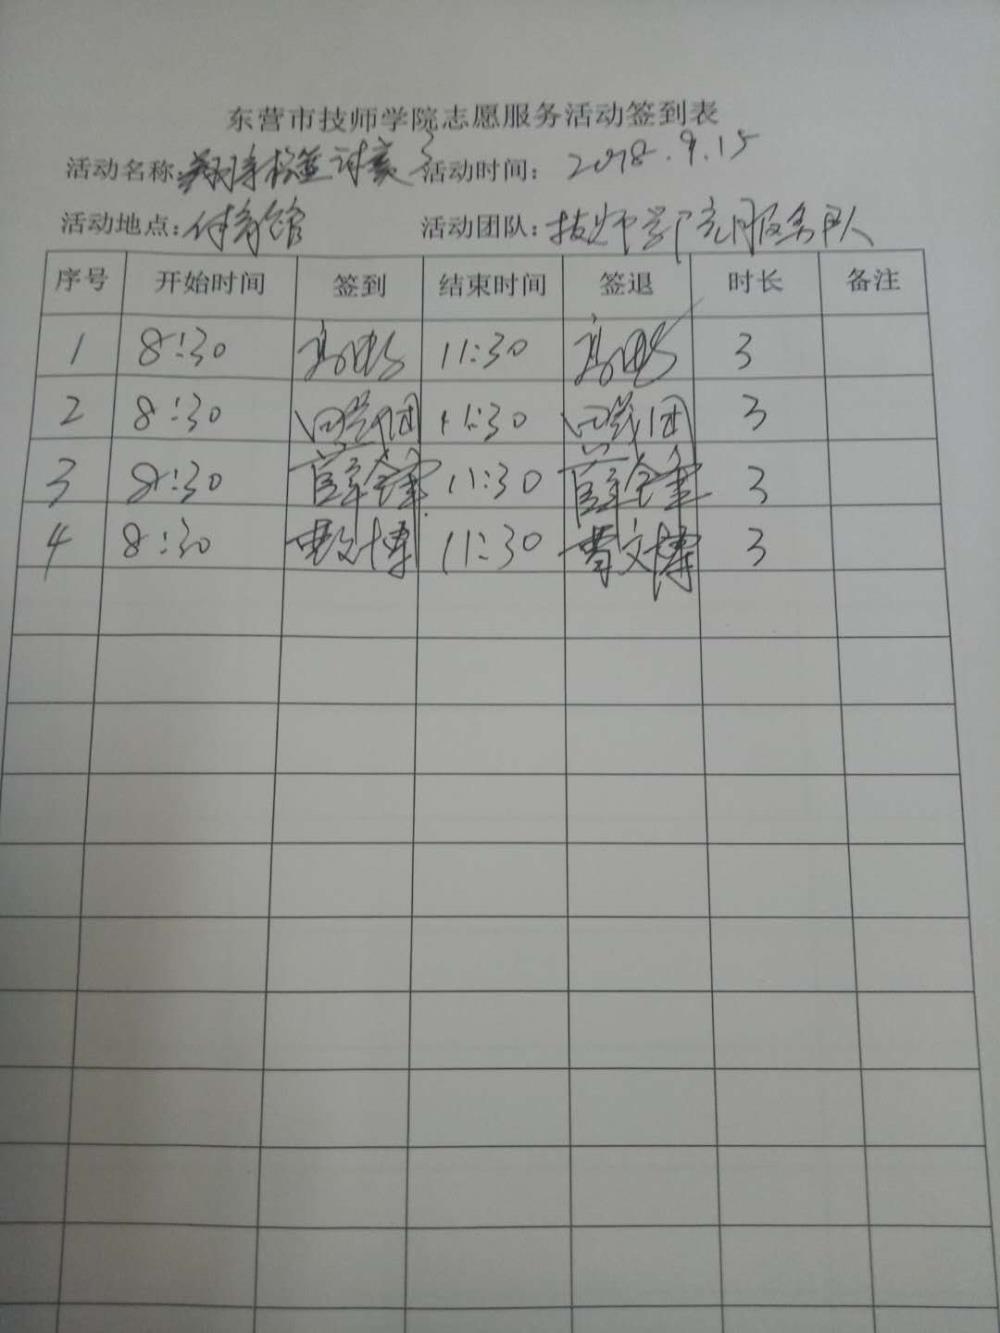 东营市技师学院志愿服务活动签到表
活动名称: 活动时间: 2018.9.15
活动地点: 体育馆 活动团队: 技师学院服务队
序号 开始时间 签到 结束时间 签退 时长 备注
1 8:30 11:30 3
2 8:30 11:30 3
3 8:30 薛金锋 11:30 薛金锋 3
4 8:30 曹文博 11:30 曹文博 3